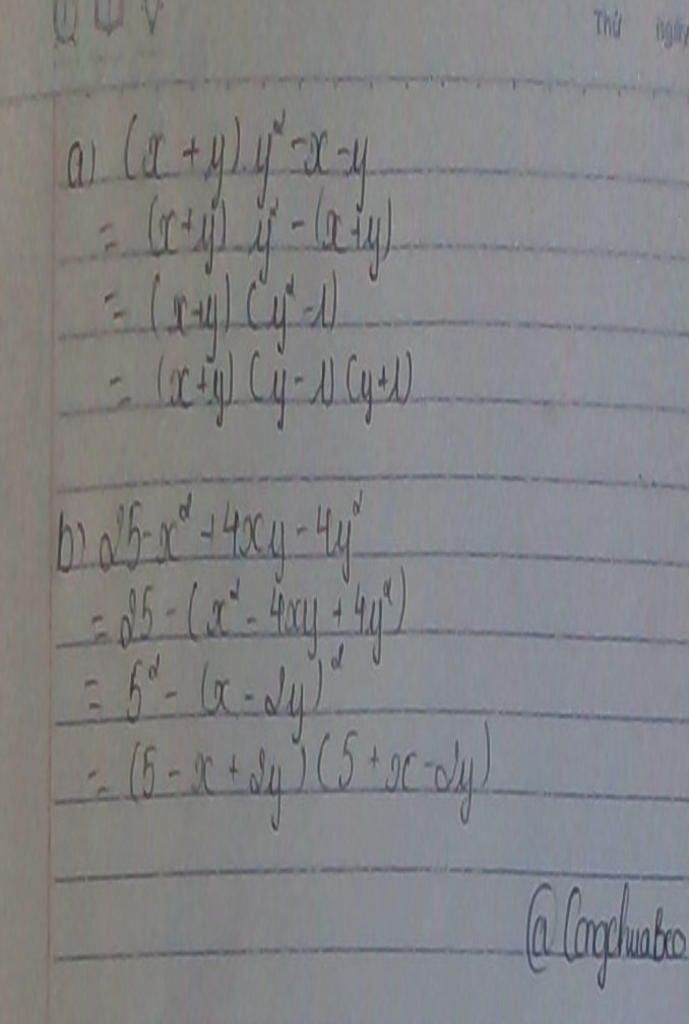 Thứ ngày
a) (x + y) y² - x - y
= (x+y) y² - (x+y)
= (x+y) (y² - 1)
= (x+y) (y - 1) (y+1)
b) 25 - x² + 4xy - 4y²
= 25 - (x² - 4xy + 4y²)
= 5² - (x - 2y)²
= (5 - x + 2y) (5 + x - 2y)
@Congchuabeo